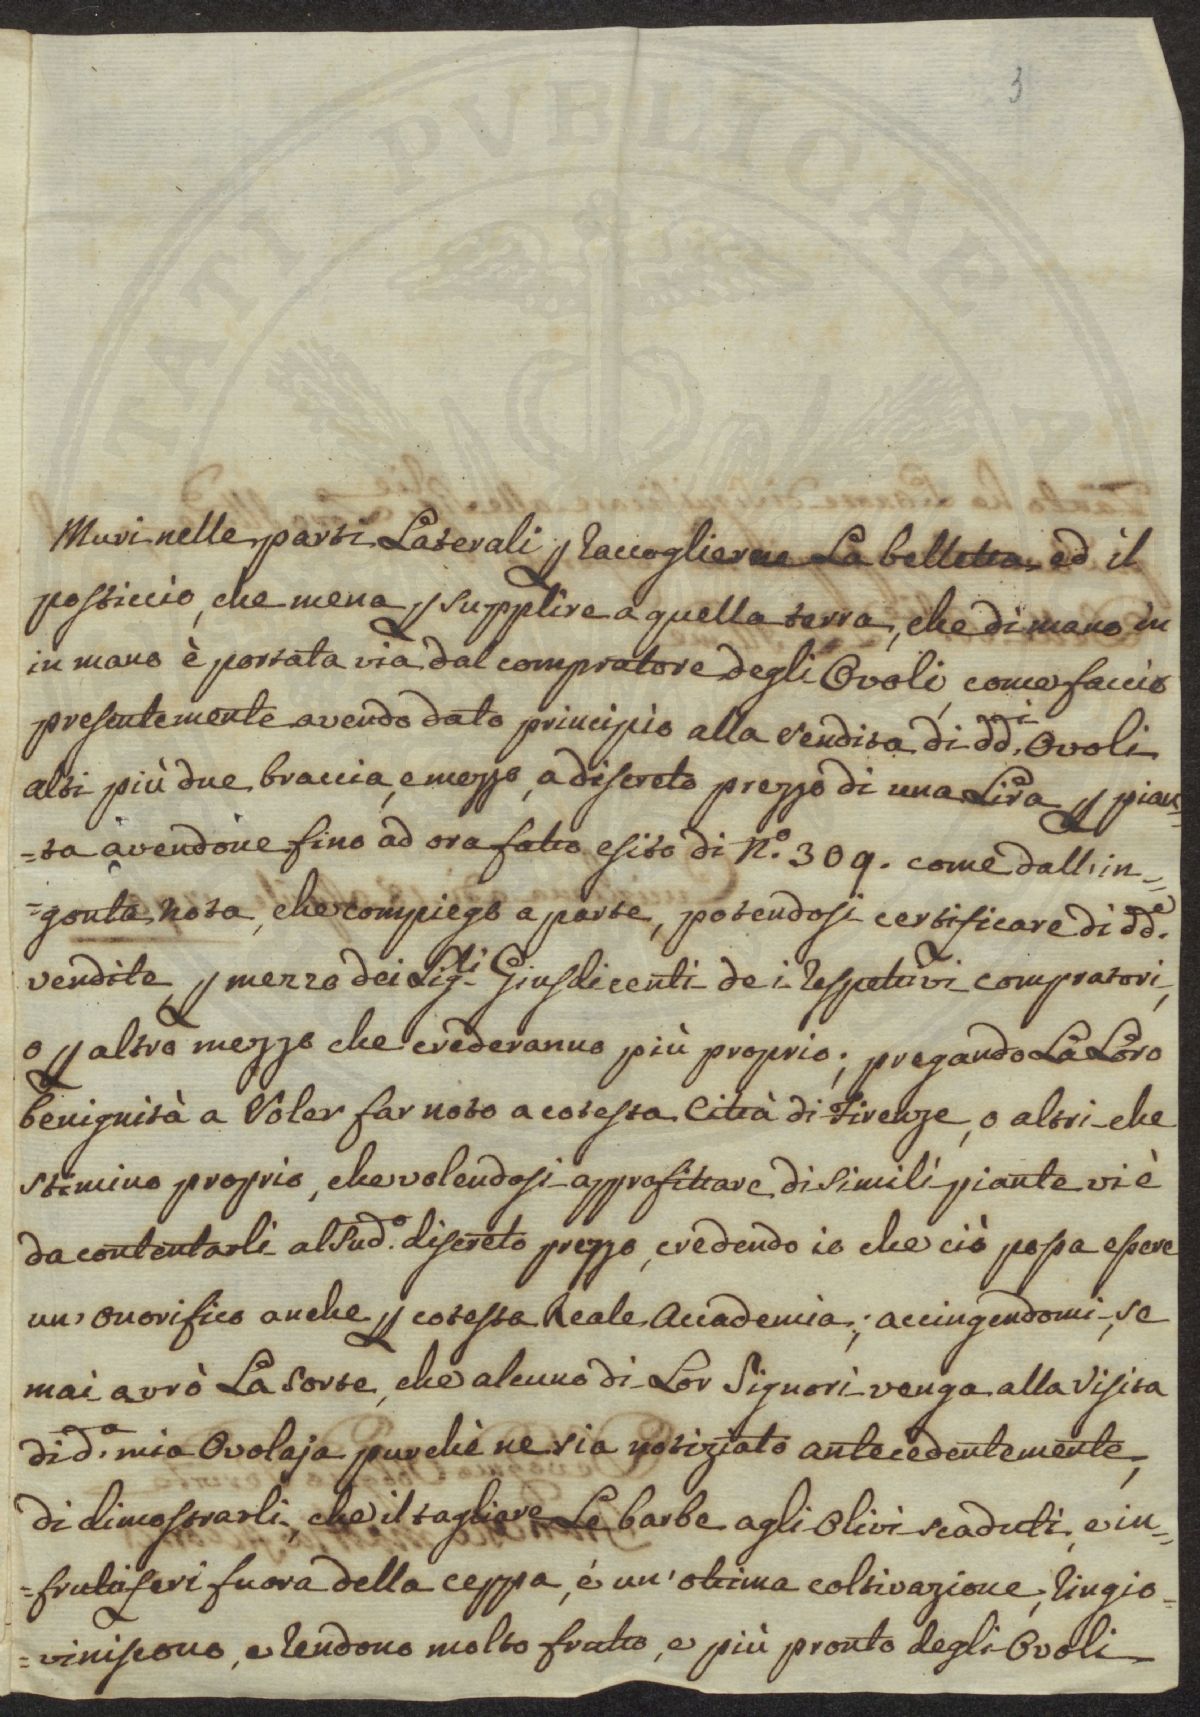 3
Muri nelle parti Laterali p raccoglierne La belletta, ed il
posticcio, che mena p supplire a quella terra, che di mano in
in mano è portata via dal compratore degli Ovoli, come faccio
presentemente avendo dato principio alla vendita di dd.i Ovoli
alti più due braccia, e mezzo, a discreto prezzo di una Lira p pian-
=ta avendone fino ad ora fatto esito di N.o 309. come dall'in-
=gonta nota, che compiego a parte, potendosi certificare di dd.e
vendite p mezzo dei Sig.ri Giusdicenti de i respettivi compratori,
o p altro mezzo che crederanno più proprio; pregando La Loro
benignità a Voler far noto a cotesta Città di Firenze, o altri che
stimino proprio, che volendosi approfittare di simili piante vi è
da contentarli al sud.o discreto prezzo, credendo io che ciò possa essere
un' onorifico anche p cotesta Reale Accademia; accingendomi, se
mai avrò La sorte, che alcuno di Lor Signori venga alla Visita
di d.a mia Ovolaja purchè ne sia notiziato antecedentemente,
di dimostrarli, che il tagliare Le barbe agli Olivi scaduti, e in-
=fruttiferi fuora della ceppa, è un' ottima coltivazione, ringio-
=viniscono, e rendono molto frutto, e più pronto degli Ovoli